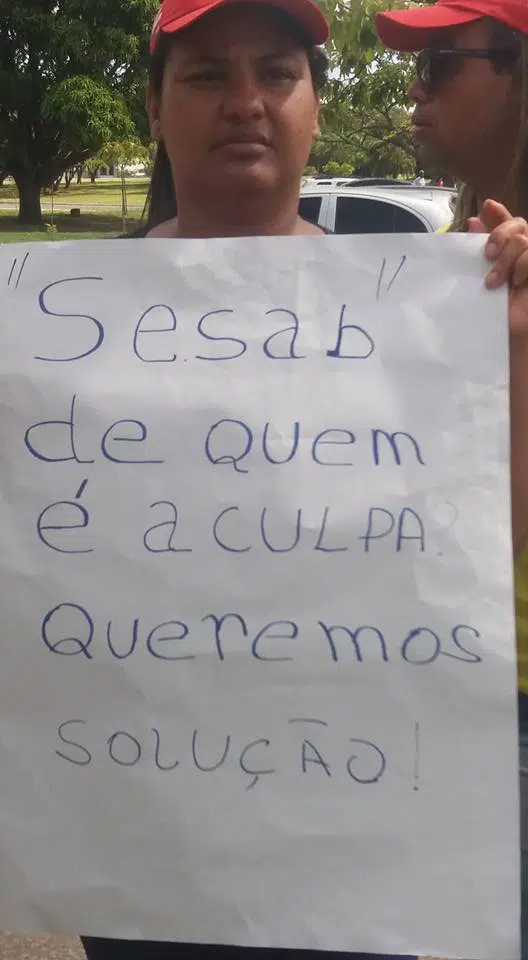 "Sesab"
de quem
é a CULPA?
Queremos
SOLUÇÃO!